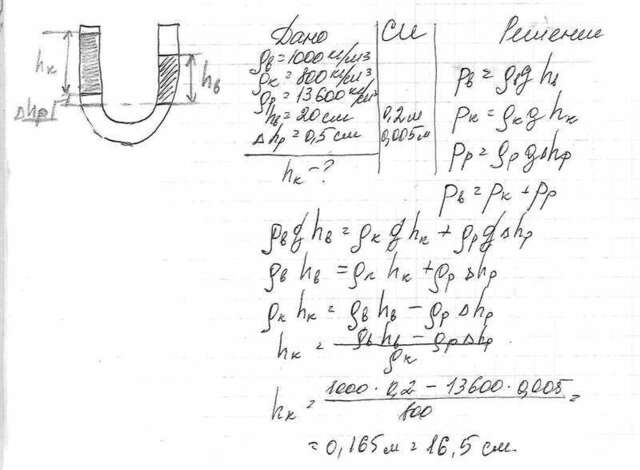 Дано СИ Решение
ρв = 1000 кг/м³
ρк = 800 кг/м³
ρр = 13600 кг/м³
hв = 20 см 0,2 м
Δhр = 0,5 см 0,005 м
hк - ?
hк
Δhр
hв
pв = ρв g hв
pк = ρк g hк
pр = ρр g Δhр
pв = pк + pр
ρв g hв = ρк g hк + ρр g Δhр
ρв hв = ρк hк + ρр Δhр
ρк hк = ρв hв - ρр Δhр
hк = (ρв hв - ρр Δhр) / ρк
hк = (1000 · 0,2 - 13600 · 0,005) / 800 =
= 0,165 м = 16,5 см.